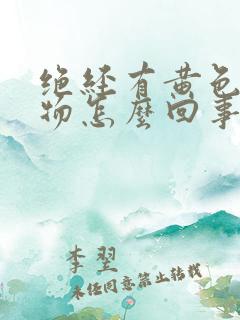 绝经有黄色
物怎麽回事
李翌
未经同意禁止转载